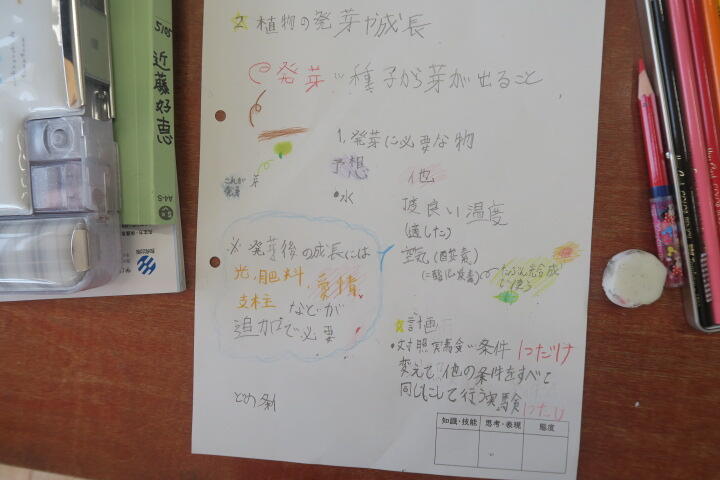 2 植物の発芽や成長
発芽…種子から芽が出ること
1.発芽に必要な物
予想
・水
これが
芽
※発芽後の成長には
光,肥料,愛情,
支柱 などが
追加で必要
他
度良い温度
(適した)
空気(酸素)
で使う
☆計画
・対照実験…条件1つだけ
変えて他の条件をすべて
同じにして行う実験
どの条
知識・技能 思考・表現 態度
5105
近藤好恵
A4-S